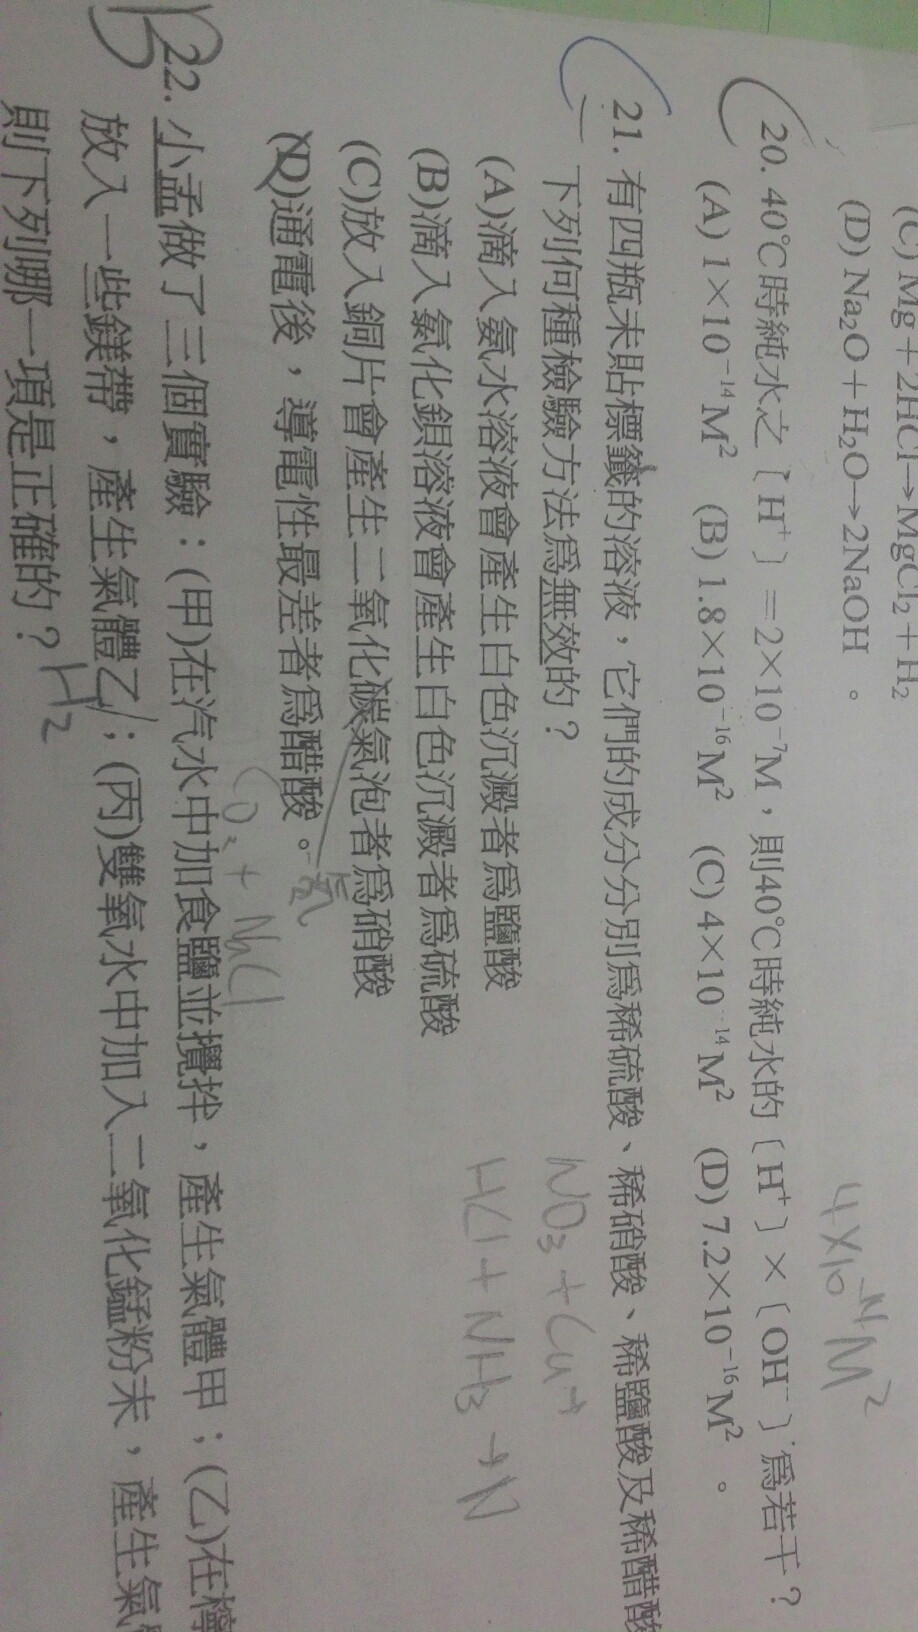 (C) Mg＋2HCl→MgCl₂＋H₂
(D) Na₂O＋H₂O→2NaOH 。
4×10⁻¹⁴M²
20. 40℃時純水之〔H⁺〕＝2×10⁻⁷M，則40℃時純水的〔H⁺〕×〔OH⁻〕為若干？
(A) 1×10⁻¹⁴M² (B) 1.8×10⁻¹⁶M² (C) 4×10⁻¹⁴M² (D) 7.2×10⁻¹⁶M² 。
21. 有四瓶未貼標籤的溶液，它們的成分分別為稀硫酸、稀硝酸、稀鹽酸及稀醋酸
下列何種檢驗方法為無效的？
NO₃+Cu→
(A)滴入氨水溶液會產生白色沉澱者為鹽酸
HCl+NH₃→N
(B)滴入氯化鋇溶液會產生白色沉澱者為硫酸
(C)放入銅片會產生二氧化碳氣泡者為硝酸
氮
(D)通電後，導電性最差者為醋酸。
CO₂+NaCl
22. 小孟做了三個實驗：(甲)在汽水中加食鹽並攪拌，產生氣體甲；(乙)在檸
放入一些鎂帶，產生氣體乙；(丙)雙氧水中加入二氧化錳粉末，產生氣
H₂
則下列哪一項是正確的？